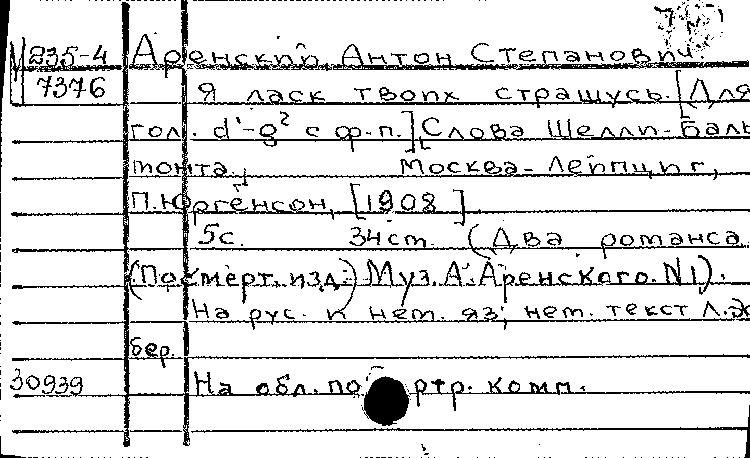 М 235-4 Аренский, Антон Степанович
7376 Я ласк твоих страшусь. [Для
гол. d¹-g² с ф-п.] Слова Шелли-Баль
монта. Москва-Лейпциг,
П. Юргенсон, [1908]
5с. 34ст. (Два романса
(Посмерт. изд.) Муз. А. Аренского. N1).
На рус. и нем. яз; нем. текст Л. Э
бер.
30939 На обл. портр. комп.